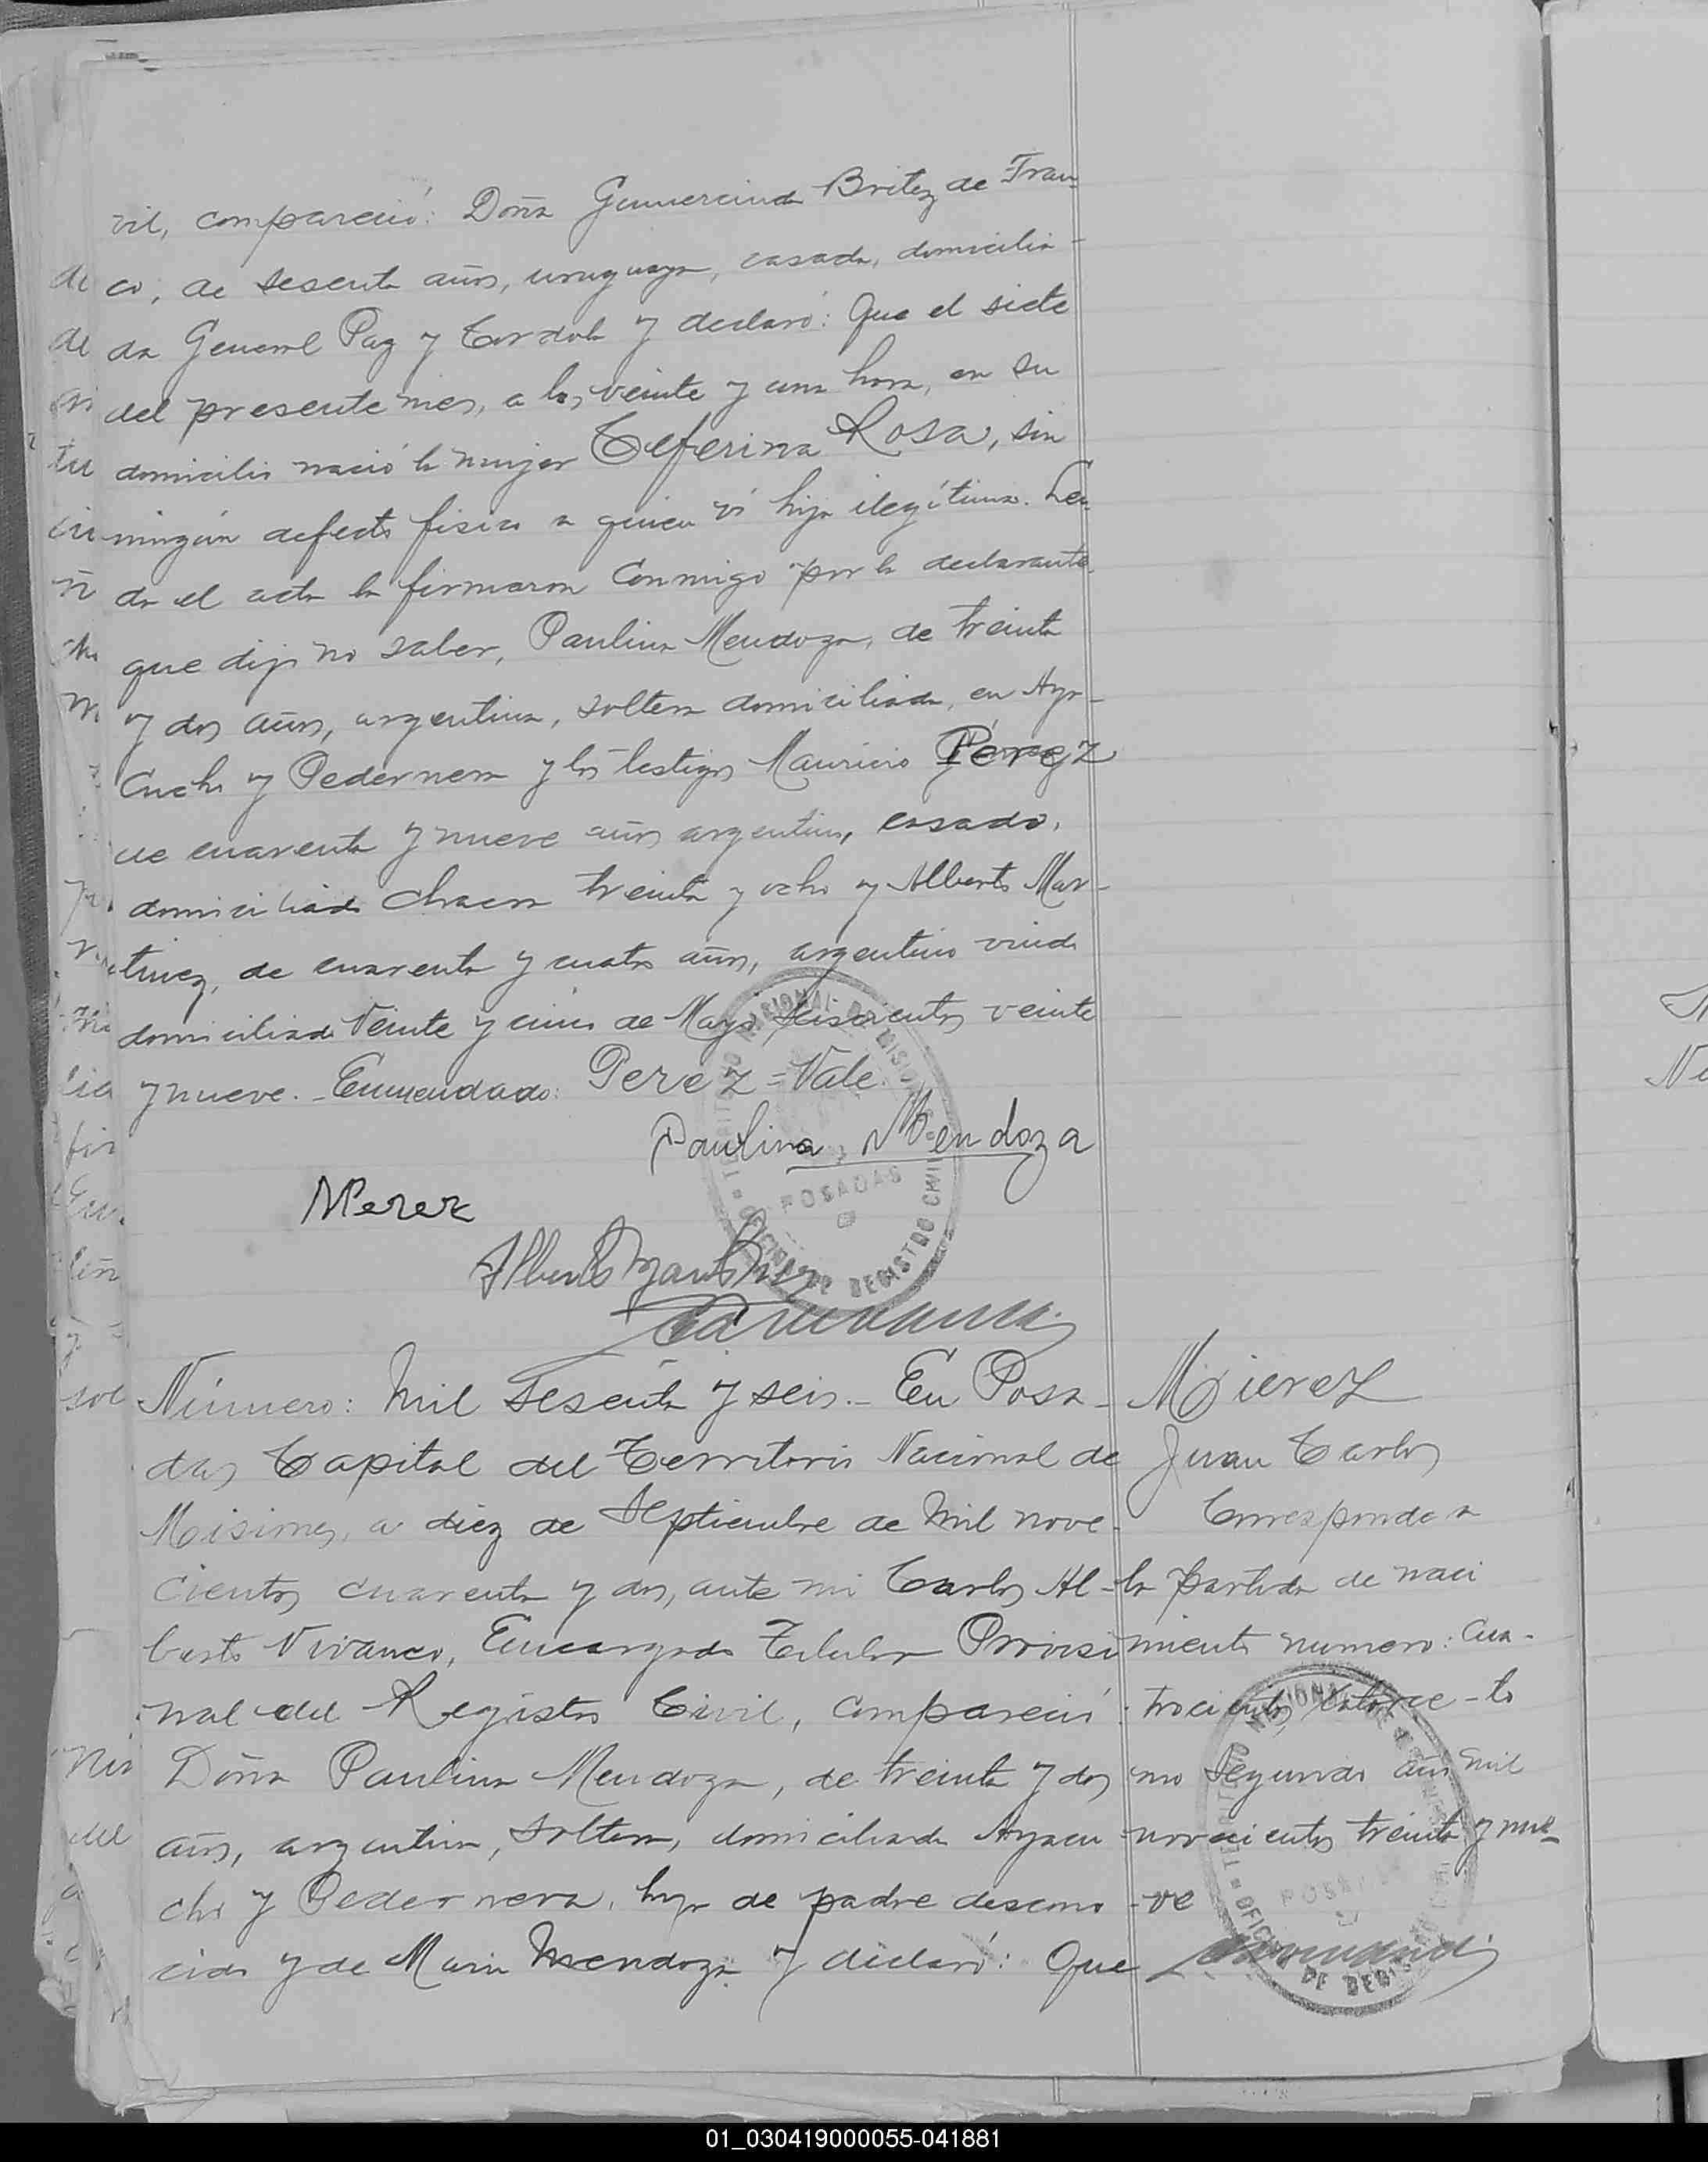 vil, compareció: Doña Gumercinda Britez de Fran
co, de sesenta años, uruguaya, casada, domicilia-
da General Paz y Cordoba y declaró: Que el siete
del presente mes, a las veinte y una hora, en su
domicilio nació la mujer Ceferina Rosa, sin
ningún defecto fisico a quien vi hija ilegítima. Leí
da el acta la firmaron conmigo por la declarante,
que dijo no saber, Paulina Mendoza, de treinta
y dos años, argentina, soltera domiciliada, en Aya-
cucho y Pedernera y los testigos Mauricio Pérez
de cuarenta y nueve años argentino, casado,
domiciliado chacra treinta y ocho y Alberto Mar-
tinez, de cuarenta y cuatro años, argentino viudo
domiciliado Veinte y cinco de Mayo seiscientos veinte
y nueve.- Enmendado: Peréz = Vale.
Paulina Mendoza
MPerez
Alberto Martinez
POSADAS
Número: Mil sesenta y seis.- En Posa-
das Capital del Territorio Nacional de
Misiones, a diez de Septiembre de mil nove-
cientos cuarenta y dos, ante mi Carlos Al-
berto Vivanco, Encargado Titular Provisi
nal del Registro Civil, compareció:
Doña Paulina Mendoza, de treinta y dos
años, argentina, soltera, domiciliada Ayacu
cho y Pedernera, hija de padre descono
cido y de Maria Mendoza y declaró: Que
Mierez
Juan Carlos
Corresponde a
la partida de naci
miento numero: Cua-
trocientos catorce - to
mo Segundo año mil
novecientos treinta y nue-
ve
01_030419000055-041881